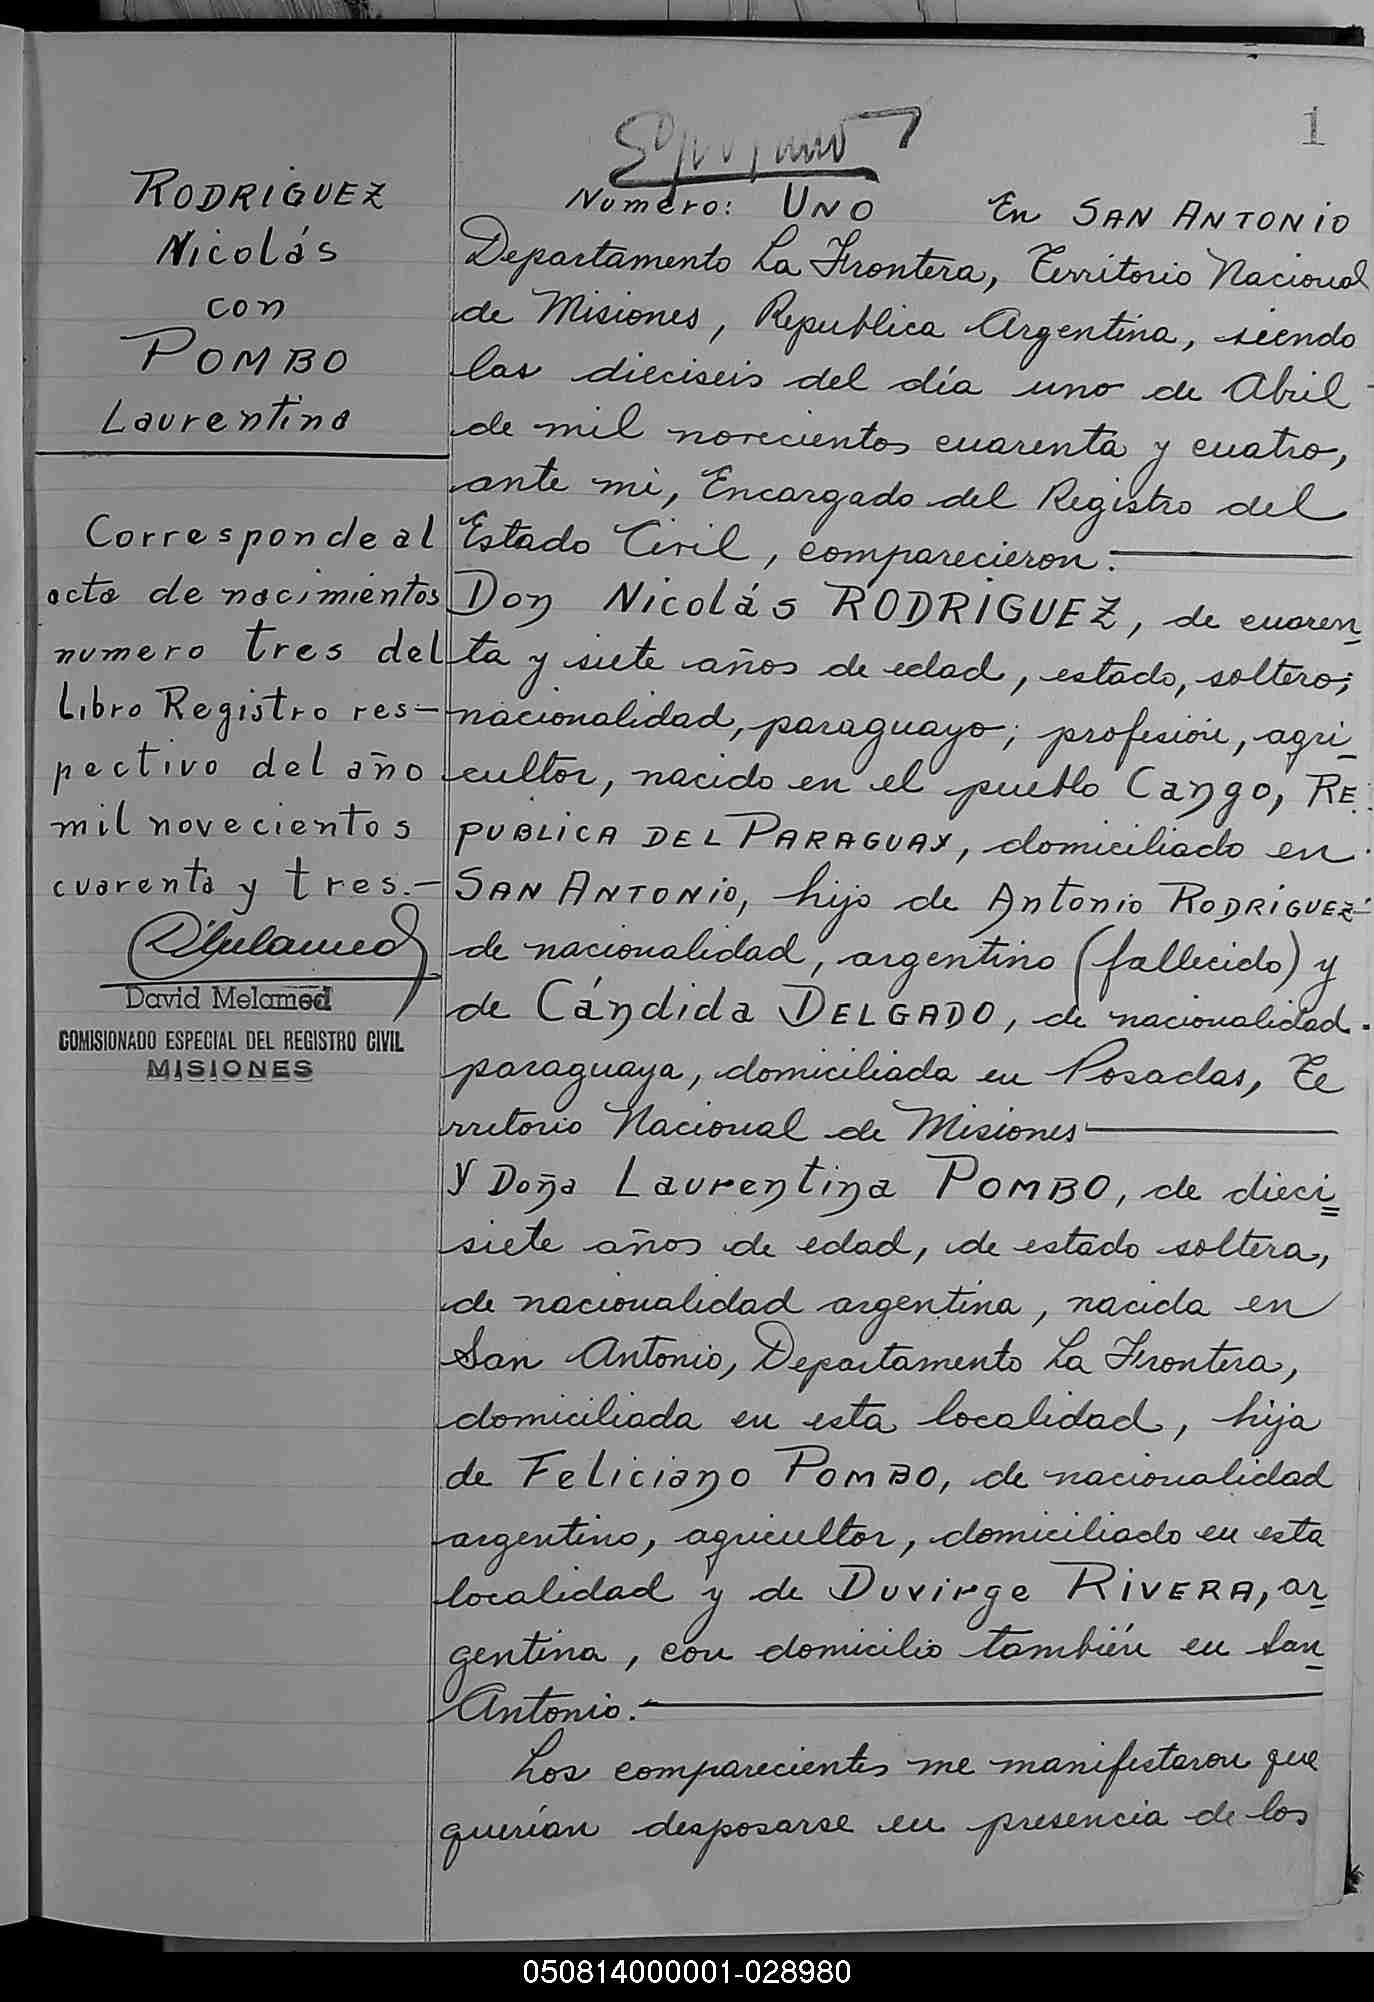 1
RODRIGUEZ
Nicolás
con
POMBO
Laurentina
Corresponde al
acta de nacimientos
numero tres del
Libro Registro res-
pectivo del año
mil novecientos
cuarenta y tres.-
David Melamed
COMISIONADO ESPECIAL DEL REGISTRO CIVIL
MISIONES
Numero: UNO En SAN ANTONIO
Departamento La Frontera, Territorio Nacional
de Misiones, Republica Argentina, siendo
las dieciseis del día uno de Abril
de mil novecientos cuarenta y cuatro,
ante mi, Encargado del Registro del
Estado Civil, comparecieron:
Don Nicolás RODRIGUEZ, de cuaren
ta y siete años de edad, estado, soltero;
nacionalidad, paraguayo; profesión, agri
cultor, nacido en el pueblo Cango, RE
PUBLICA DEL PARAGUAY, domiciliado en
SAN ANTONIO, hijo de Antonio RODRIGUEZ
de nacionalidad, argentino (fallecido) y
de Cándida DELGADO, de nacionalidad
paraguaya, domiciliada en Posadas, Te
rritorio Nacional de Misiones
Y Doña Laurentina POMBO, de dieci
siete años de edad, de estado soltera,
de nacionalidad argentina, nacida en
San Antonio, Departamento La Frontera,
domiciliada en esta localidad, hija
de Feliciano POMBO, de nacionalidad
argentino, agricultor, domiciliado en esta
localidad y de Duvirge RIVERA, ar
gentina, con domicilio también en San
Antonio.
Los comparecientes me manifestaron que
querían desposarse en presencia de los
050814000001-028980